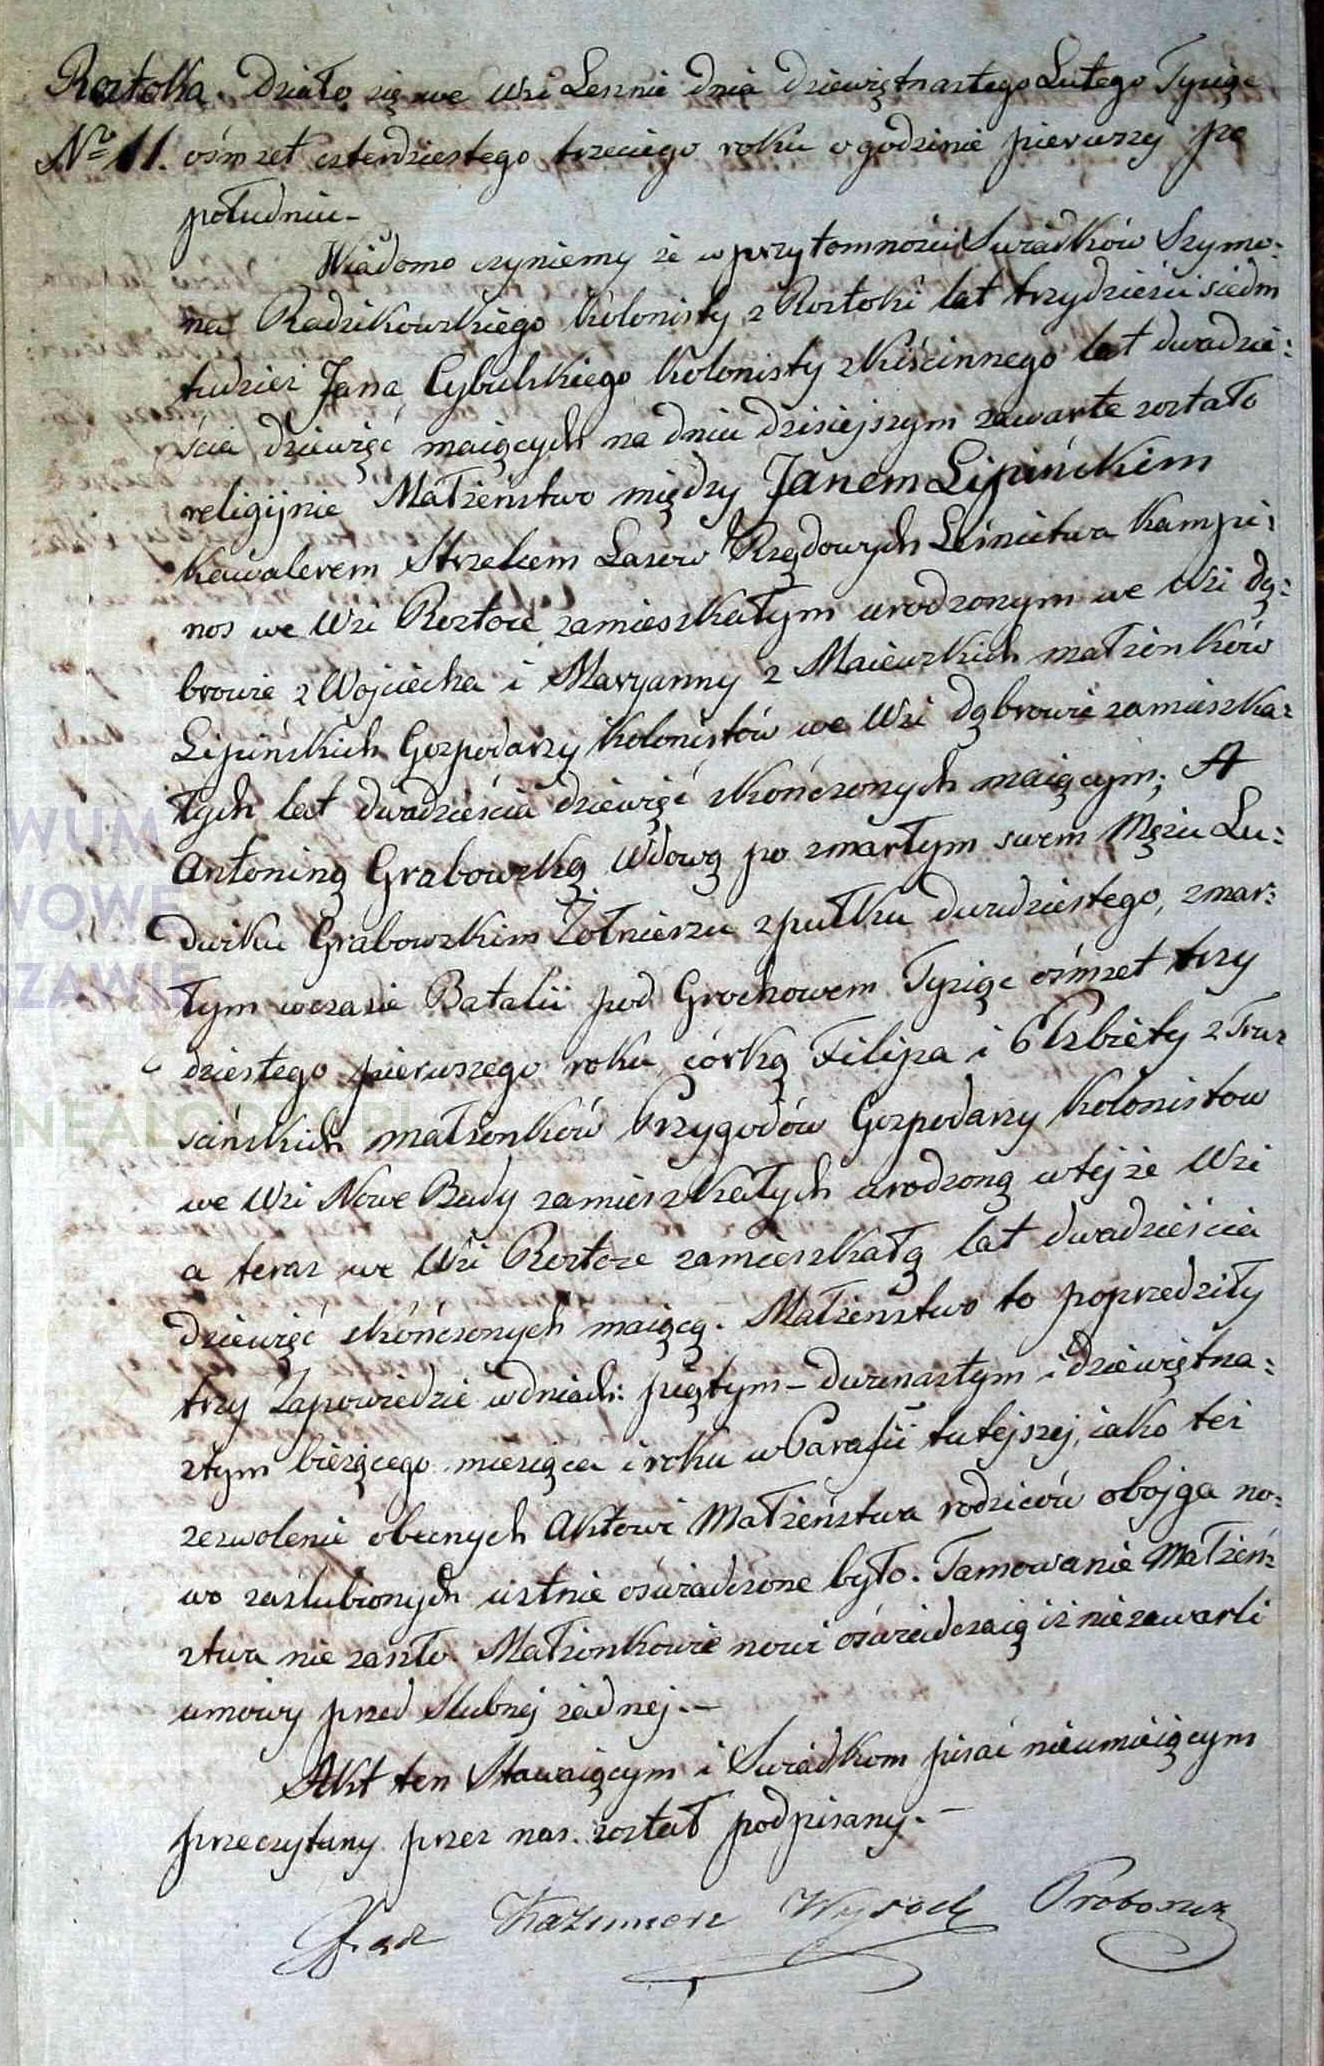 Roztoka. Działo się we Wsi Lesznie dnia dziewiętnastego Lutego Tysiąc
No 11. ośmset czterdziestego trzeciego roku o godzinie pierwszy po
południu –
Wiadomo czyniemy że w przytomności Swiadków Szymo-
na Radzikowskiego Kolonisty z Roztoki lat trzydzieści siedm
tudzież Jana Cybulskiego Kolonisty z Kiścinnego lat dwadzie:
ścia dziewięć maiących na dniu dzisiejszym zawarte zostało
religijnie Małżeństwo między Janem Lipińskim
Kawalerem Strzelcem Lasow Rządowych Leśnictwa Kampi:
nos we Wsi Roztoce zamieszkałym urodzonym we Wsi dą:
browie z Wojciecha i Maryanny z Maiewskich małżonków
Lipińskich Gospodarzy Kolonistów we Wsi dąbrowie zamieszka:
łych lat dwadzieścia dziewięć skończonych maiącym; A
Antoniną Grabowską Wdową po zmarłym swem Mężu Lu:
dwiku Grabowskim Żołnierzu z pułku dwudziestego, zmar:
łym w czasie Batalii pod Grochowem Tysiąc ośmset trzy
dziestego pierwszego roku, córką Filipa i Elżbiety z Tru:
scińskich małżonków Przygodów Gospodarzy Kolonistow
we Wsi Nowe Budy zamieszkałych urodzoną w tejże Wsi
a teraz we Wsi Roztoce zamieszkałą lat dwadzieścia
dziewięć skończonych maiącą. Małżeństwo to poprzedziły
trzy Zapowiedzie w dniach: piątym – dwunastym i dziewiętna:
stym bieżącego miesiąca i roku w Parafii tutejszej, iako też
zezwolenie obecnych Aktowi Małżeństwa rodziców obojga no:
wo zaslubionych ustnie oświadczone było. Tamowanie Małżeń:
stwa nie zaszło. Małżonkowie nowi oświadczaią iż nie zawarli
umowy przed slubnej żadnej. –
Akt ten Stawaiącym i Swiadkom pisać nieumieiącym
przeczytany przez nas został podpisany. –
Xiądz Kazimierz Wysocki Proboszcz
WUM
WOWE
SZAWIE
NEALODZY.PL